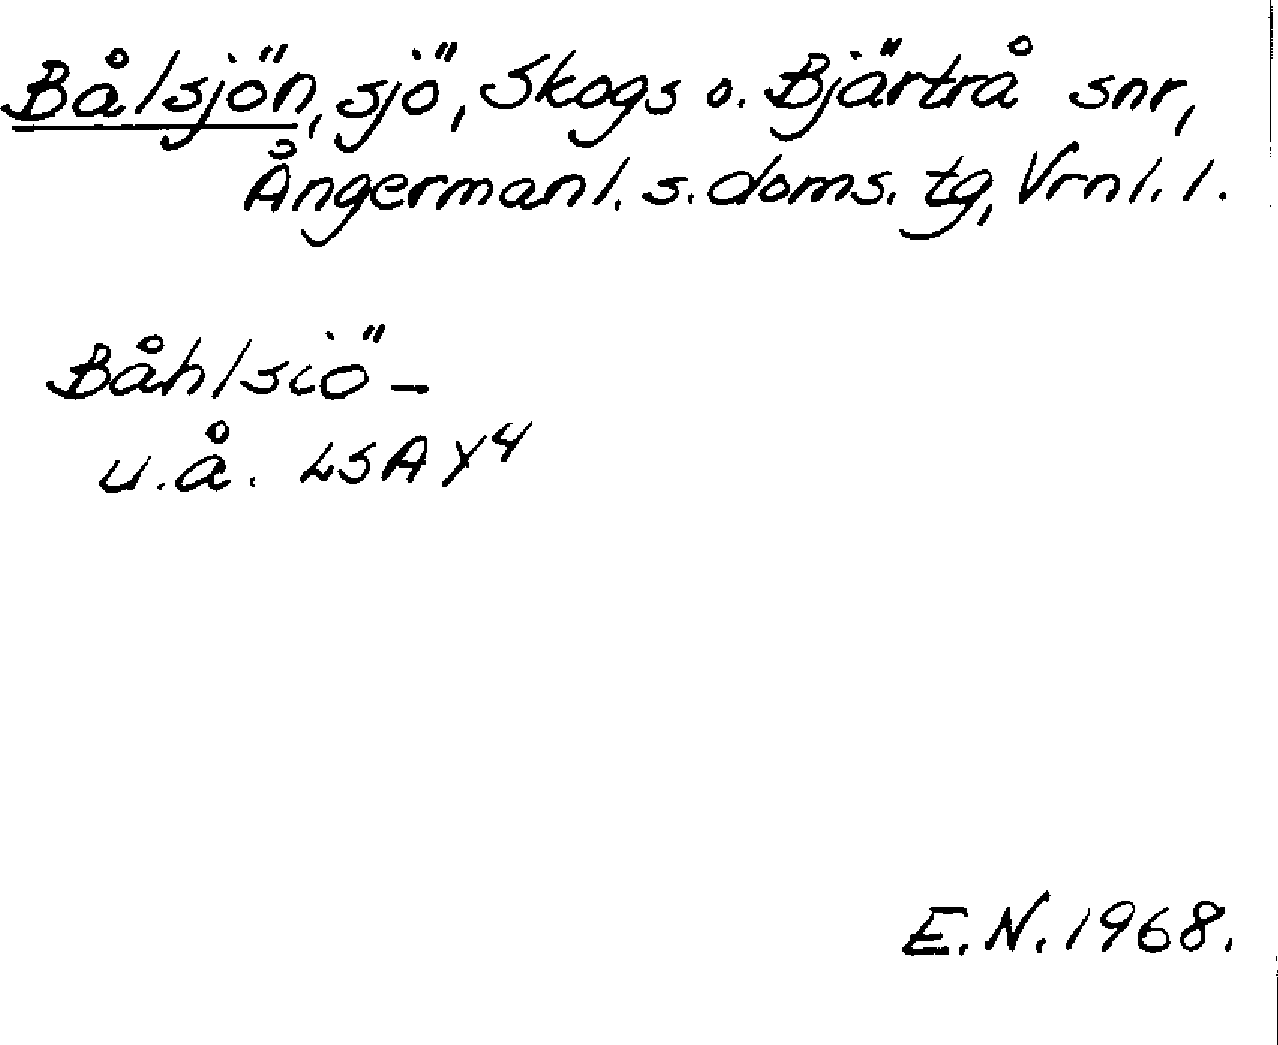 Bålsjön, sjö, Skogs o. Bjärtrå snr,
Ångermanl. s. doms. tg, Vrnl. l.
Båhlsiö –
u.å. LSA Y4
E.N. 1968.